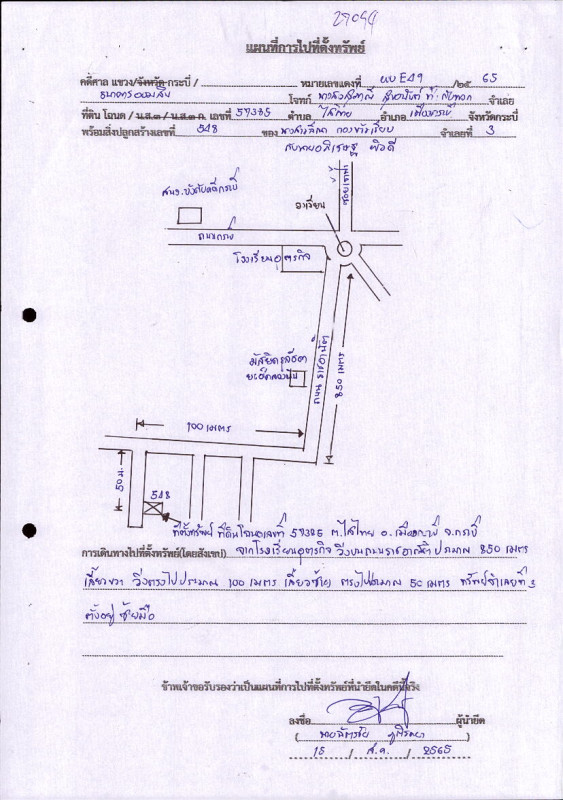 27044
แผนที่การไปที่ตั้งทรัพย์
คดีศาล แขวง/จังหวัด กระบี่ / หมายเลขแดงที่ ผบE49 /๒๕ 65
ธนาคารออมสิน โจทก์ นางสาว ที่ 1 กับพวก จำเลย
ที่ดิน โฉนด / น.ส.๓ / น.ส.๓ ก. เลขที่ 57385 ตำบล ไสไทย อำเภอ เมืองกระบี่ จังหวัดกระบี่
พร้อมสิ่งปลูกสร้างเลขที่ 548 ของ จำเลยที่ 3
ซอย
สนง.บังคับคดีกระบี่
วงเวียน
ถนน
โรงเรียนอุตรกิจ
มัสยิด
ถนน
850 เมตร
100 เมตร
50 ม.
548
ที่ตั้งทรัพย์ ที่ดินโฉนดเลขที่ 57385 ต.ไสไทย อ.เมืองกระบี่ จ.กระบี่
การเดินทางไปที่ตั้งทรัพย์(โดยสังเขป) จากโรงเรียนอุตรกิจ วิ่งบนถนน ประมาณ 850 เมตร
เลี้ยวขวา วิ่งตรงไปประมาณ 100 เมตร เลี้ยวซ้าย ตรงไปประมาณ 50 เมตร ทรัพย์จำเลยที่ 3
ตั้งอยู่ ซ้ายมือ
ข้าพเจ้าขอรับรองว่าเป็นแผนที่การไปที่ตั้งทรัพย์ที่นำยึดในคดีนี้จริง
ลงชื่อ ผู้นำยึด
( นายฉัตรชัย )
15 / ส.ค. / 2565